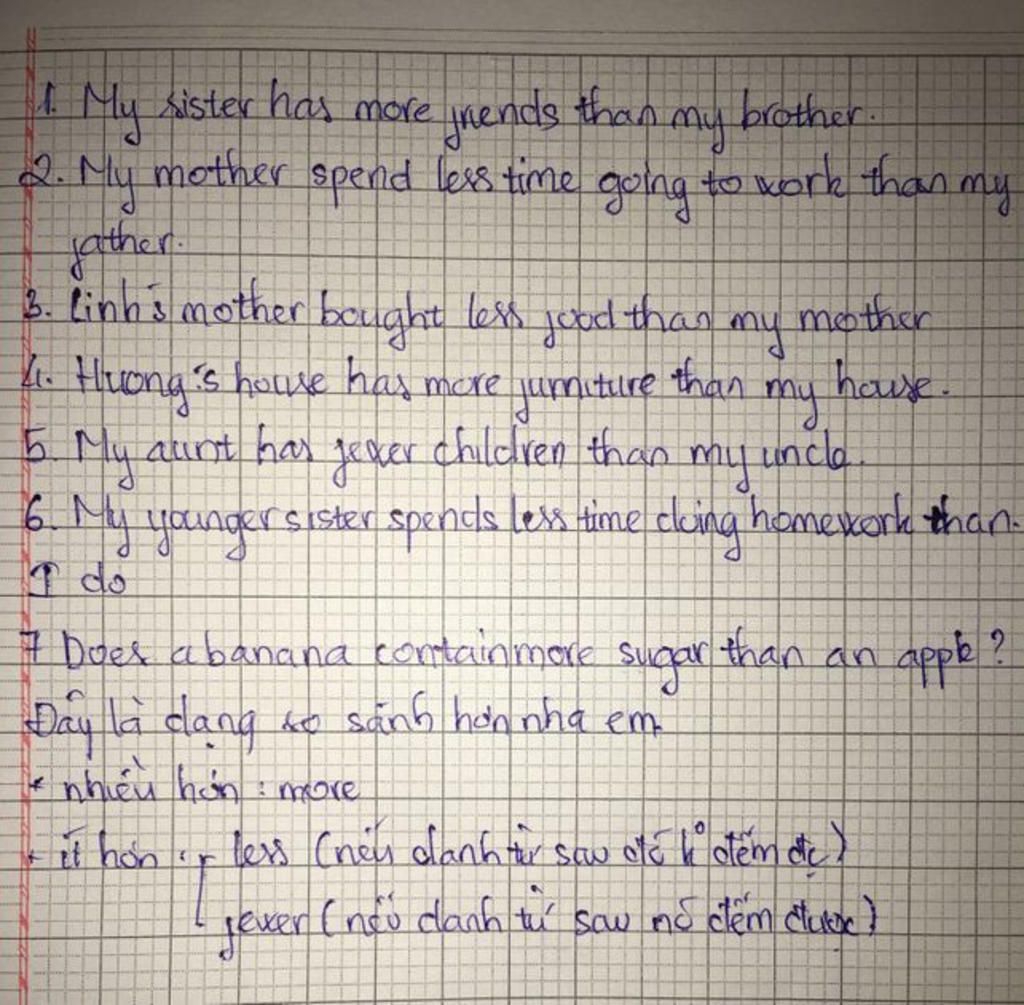 1. My sister has more friends than my brother.
2. My mother spend less time going to work than my
father.
3. Linh's mother bought less food than my mother
4. Huong's house has more furniture than my house.
5. My aunt has fewer children than my uncle.
6. My younger sister spends less time doing homework than
I do
7 Does a banana contain more sugar than an apple?
Đây là dạng so sánh hơn nha em
* nhiều hơn : more
+ ít hơn : less (nếu danh từ sau đó k° đếm đc)
fewer (nếu danh từ sau nó đếm được)